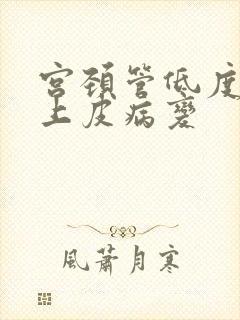 宫颈管低度
上皮病变
風蕭月寒